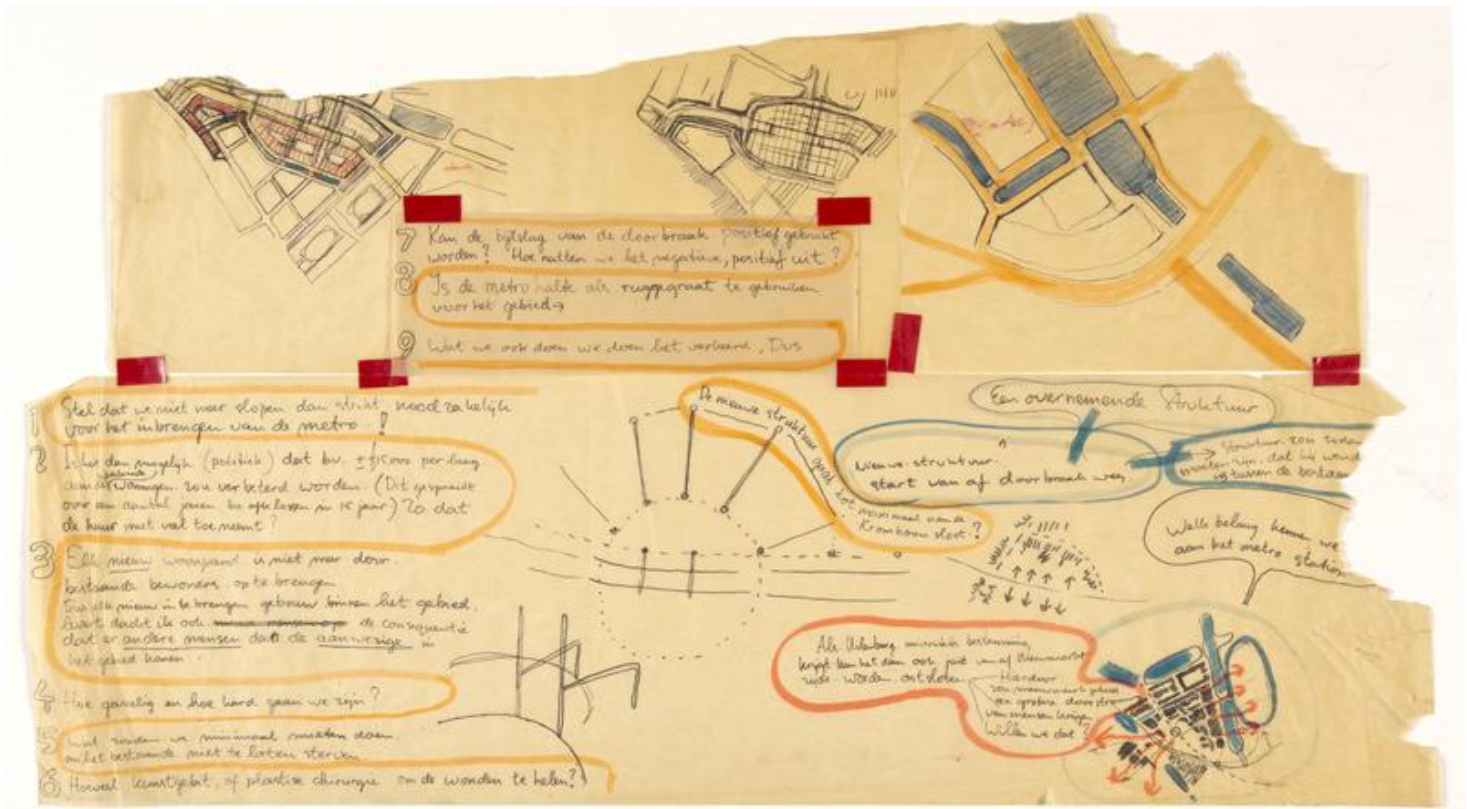 7 Kan de bijslag van de doorbraak positief gebruikt
worden? Hoe nutten we het negatieve, positief uit?
8 Is de metro halte als ruggegraat te gebruiken
voor het gebied →
9 Wat we ook doen we doen het verkeerd, Dus
1 Stel dat we niet meer slopen dan strikt noodzakelijk
voor het inbrengen van de metro!
2 Is het dan mogelijk (politiek) dat bv. ± per
woningen zou verbeterd worden. (Dit
over een aantal jaren in 15 jaar) Zo dat
de huur niet veel toeneemt?
3 Elk nieuw woonpand is niet meer door
bestaande bewoners op te brengen
Dus elk nieuw in te brengen gebouw binnen het gebied
dacht ik ook de consequentie
dat er andere mensen dan de aanwezige in
het gebied komen.
4 Hoe gavelig en hoe hard gaan we zijn?
5 Wat zouden we minimaal moeten doen
om het bestaande niet te laten sterven
6 Hoeveel kunstgebit, of plastise chirurgie om de wonden te helen?
De nieuwe struktuur gaat tot maximaal aan de
Kromboomsloot?
Een overnemende Struktuur
Nieuwe struktuur
start van af doorbraak weg
→ Struktuur zou zodanig
moeten zijn, dat hij
is tussen de bestaande
Welk belang kennen we
aan het metro station
Als Uilenburg bestemming
krijgt kan het dan ook juist vanaf Nieuwmarkt
worden ontsloten
Hierdoor
zou nieuwmarkt gebied
een grotere doorstroming
van mensen krijgen
Willen we dat?